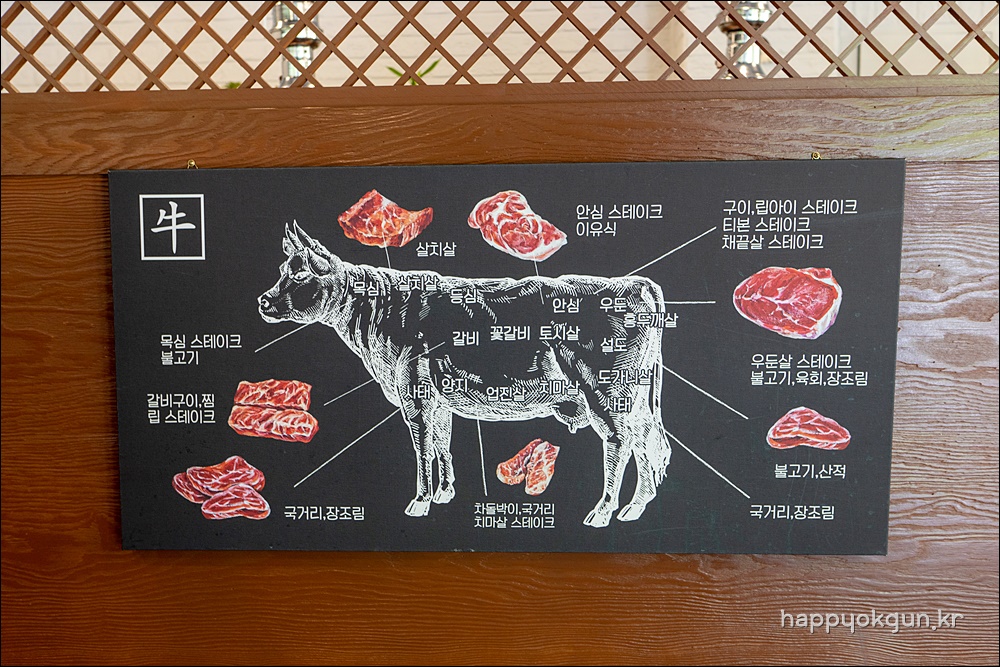 牛
살치살
안심 스테이크
이유식
구이,립아이 스테이크
티본 스테이크
채끝살 스테이크
목심
살치살
등심
안심
우둔
홍두깨살
갈비
꽃갈비
토시살
설도
사태
양지
업진살
치마살
도가니살
사태
목심 스테이크
불고기
갈비구이,찜
립 스테이크
우둔살 스테이크
불고기,육회,장조림
불고기,산적
국거리,장조림
차돌박이,국거리
치마살 스테이크
국거리,장조림
happyokgun.kr